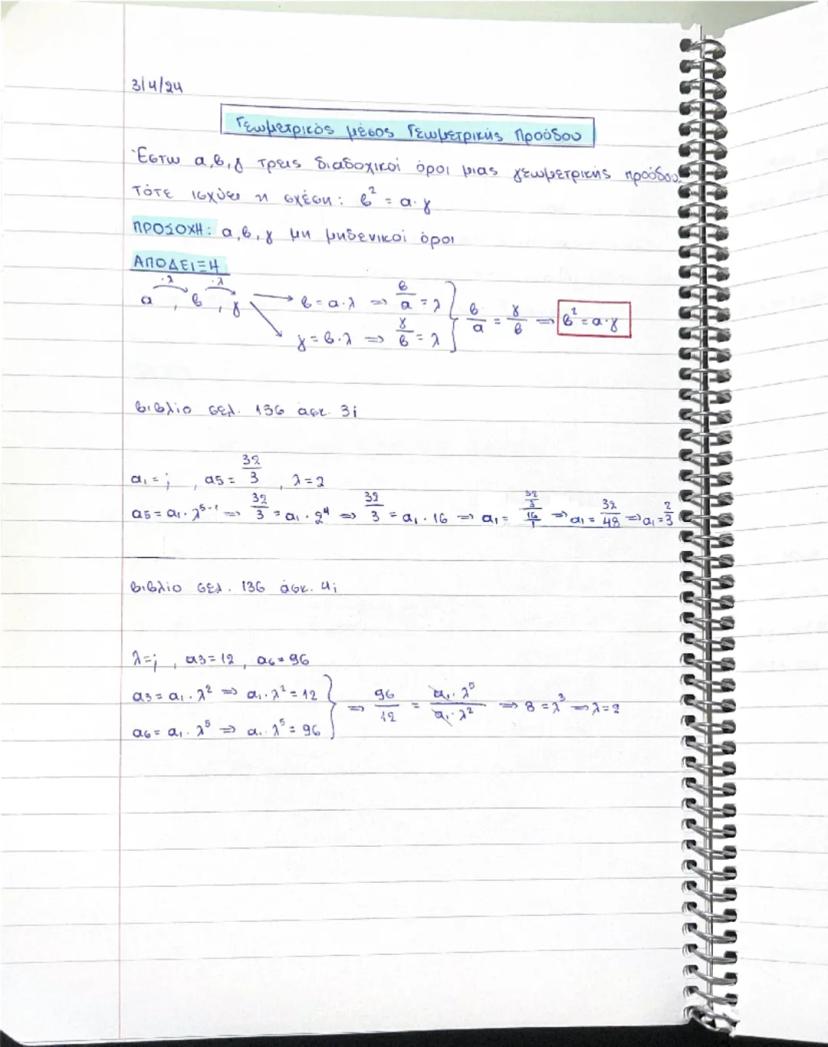 3/4/24
Γεωμετρικός μέσος Γεωμετρικής Προόδου
Έστω α,β,γ τρεις διαδοχικοί όροι μιας γεωμετρικής προόδου.
τότε ισχύει η σχέση: β² = α·γ
ΠΡΟΣΟΧΗ: α,β,γ μη μηδενικοί όροι
ΑΠΟΔΕΙΞΗ
·λ ·λ
α , β , γ → β = α·λ ⇒ β/α = λ
γ = β·λ ⇒ γ/β = λ } β/α = γ/β ⇒ β² = α·γ
βιβλίο σελ. 136 ασκ. 3i
α₁ = ; , α5 = 32/3 , λ = 2
α5 = α₁·λ⁵⁻¹ ⇒ 32/3 = α₁·2⁴ ⇒ 32/3 = α₁·16 ⇒ α₁ = (32/3)/(16/1) ⇒ α₁ = 32/48 ⇒ α₁ = 2/3
βιβλίο σελ. 136 άσκ. 4i
λ = ; , α3 = 12 , α6 = 96
α3 = α₁·λ² ⇒ α₁·λ² = 12
α6 = α₁·λ⁵ ⇒ α₁·λ⁵ = 96 } ⇒ 96/12 = α₁·λ⁵/α₁·λ² ⇒ 8 = λ³ ⇒ λ = 2